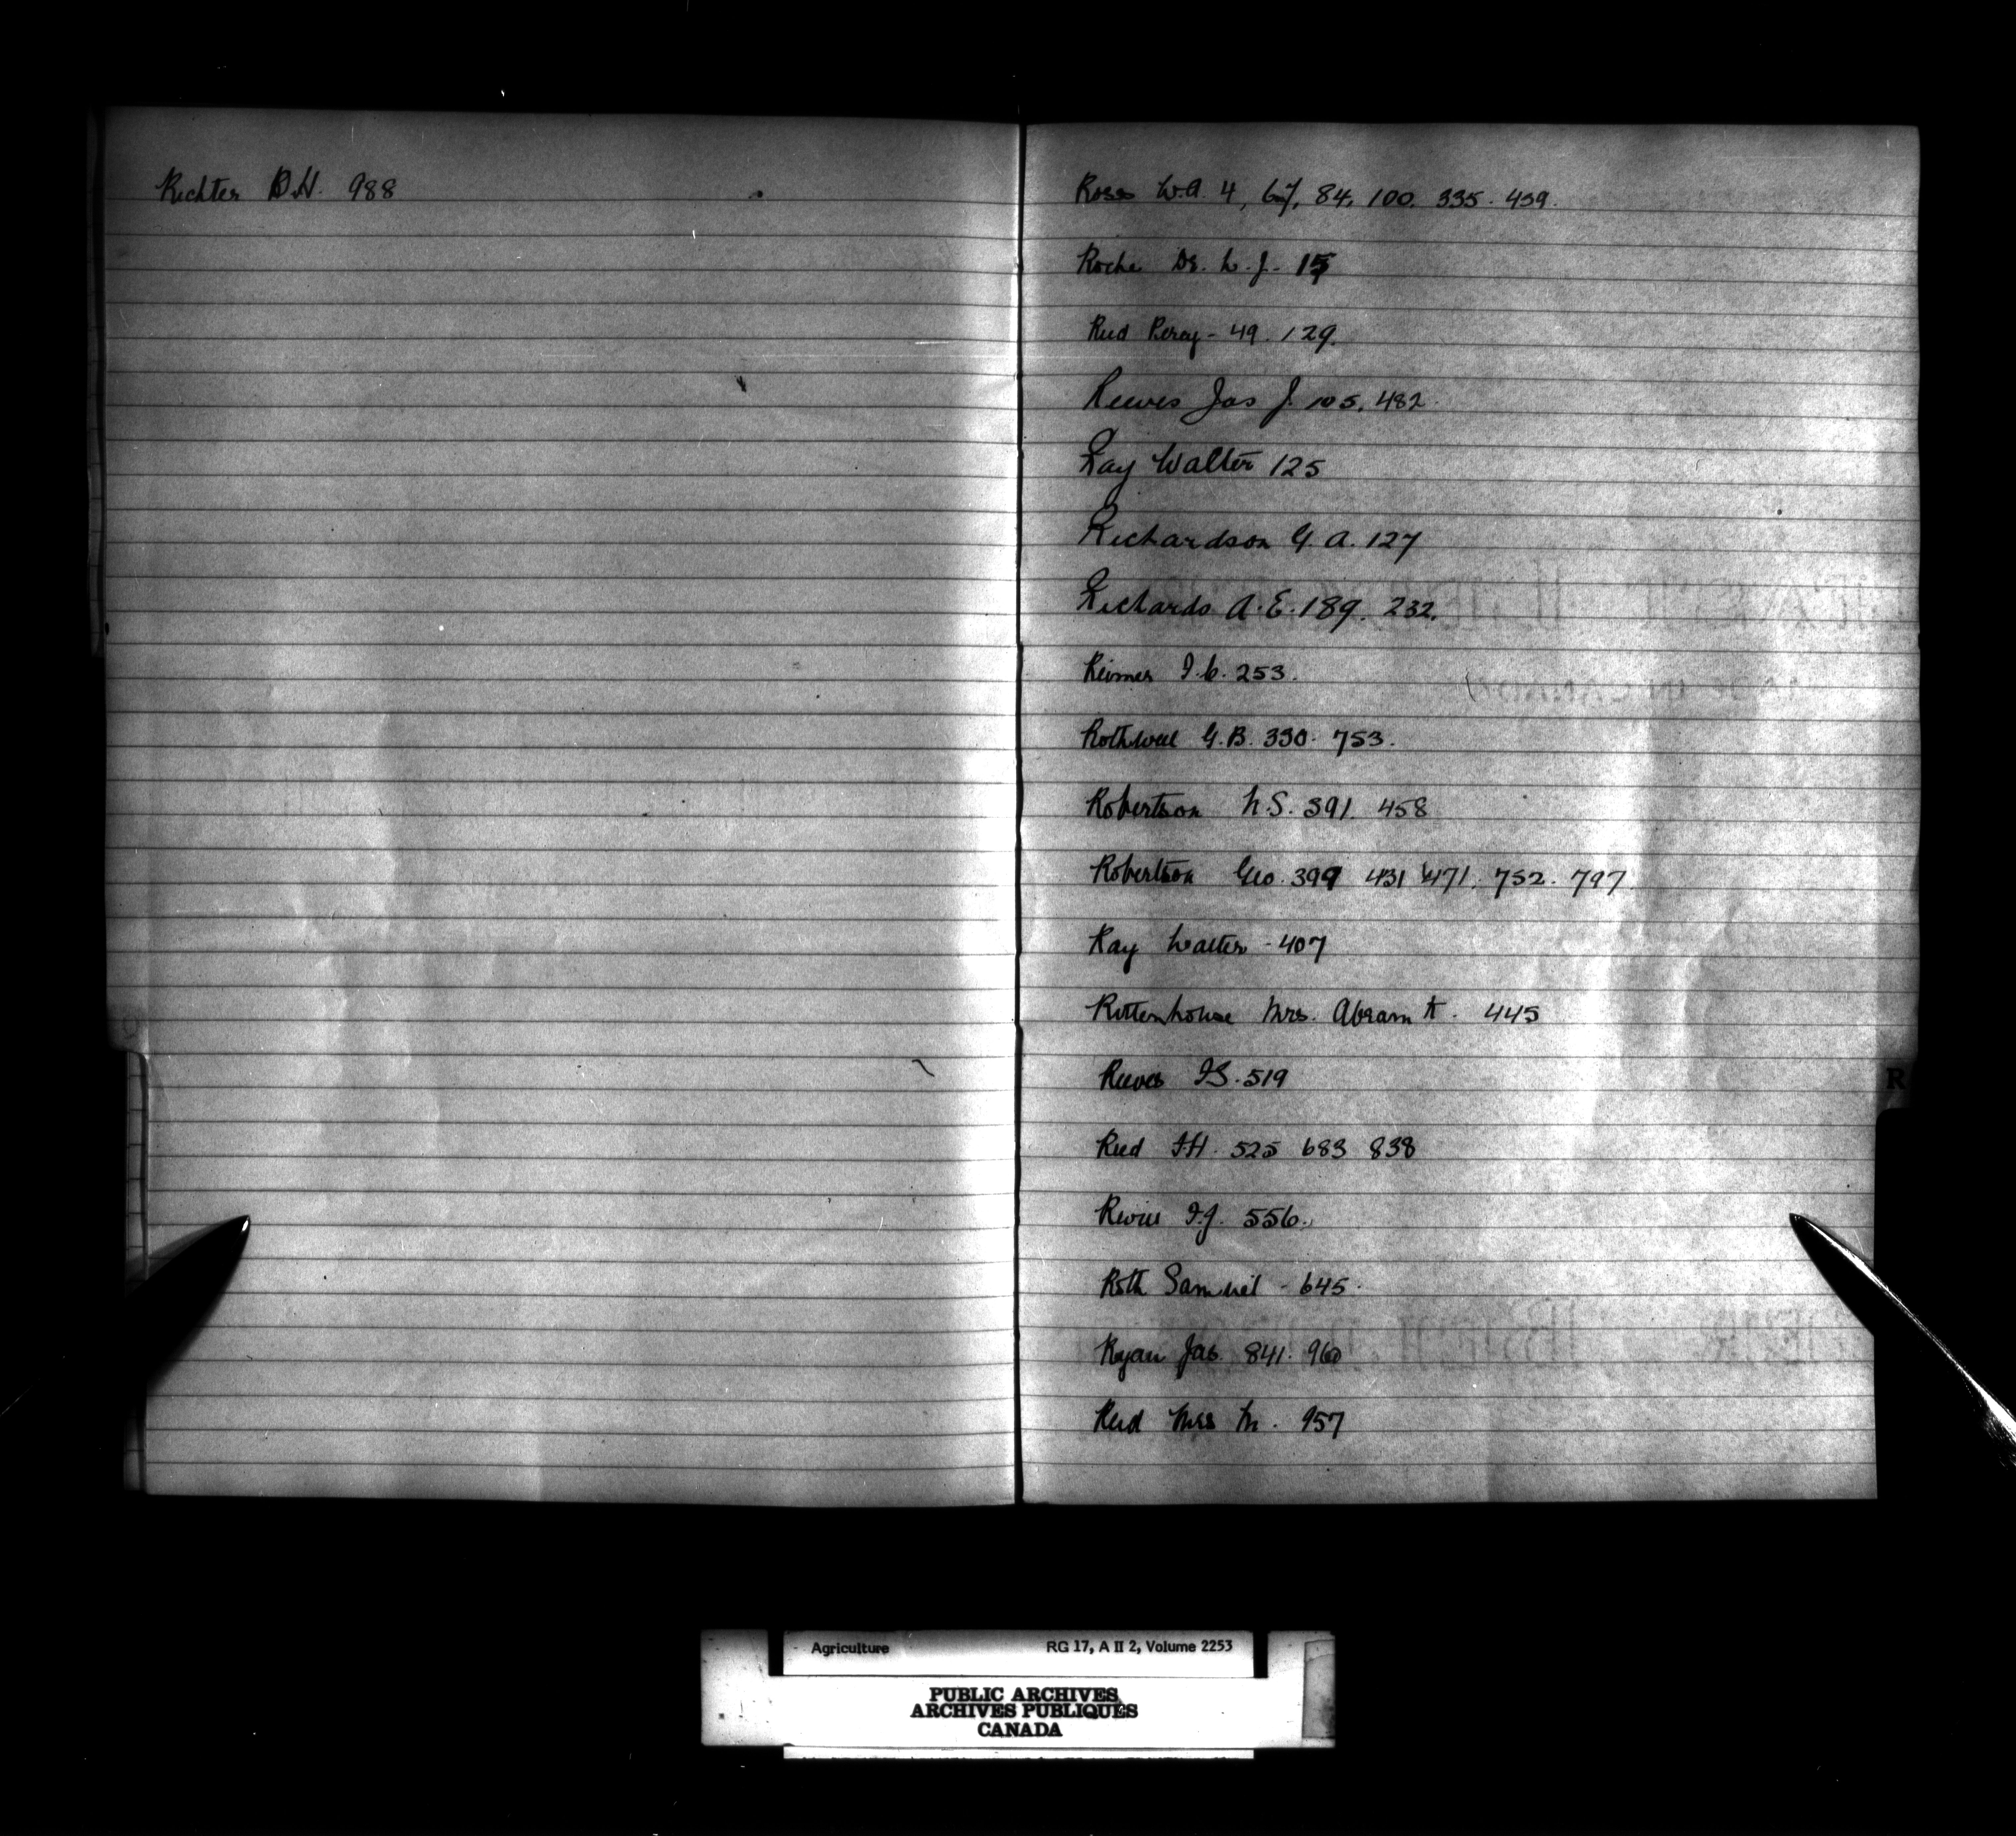 Richter B.H. 988
Ross W.A. 4, 67, 84, 100. 335. 439.
Roche Dr. W. J. - 15
Reid Percy - 49. 129.
Reeves Jas J. 105. 482
Ray Walter 125
Richardson G. A. 127
Richards A. E. 189. 232.
Reimer I. C. 253.
Rothwell G. B. 330. 753.
Robertson W. S. 391. 458
Robertson Geo. 399 431 471. 752. 797
Ray Walter - 407
Rittenhouse Mrs. Abram H. 445
Reeves I S. 519
Reed J. H. 525 683 838
Rivin I. J. 556.
Roth Samuel - 645.
Ryan Jas. 841. 960
Reid Mrs M. 957
R
Agriculture RG 17, A II 2, Volume 2253
PUBLIC ARCHIVES
ARCHIVES PUBLIQUES
CANADA